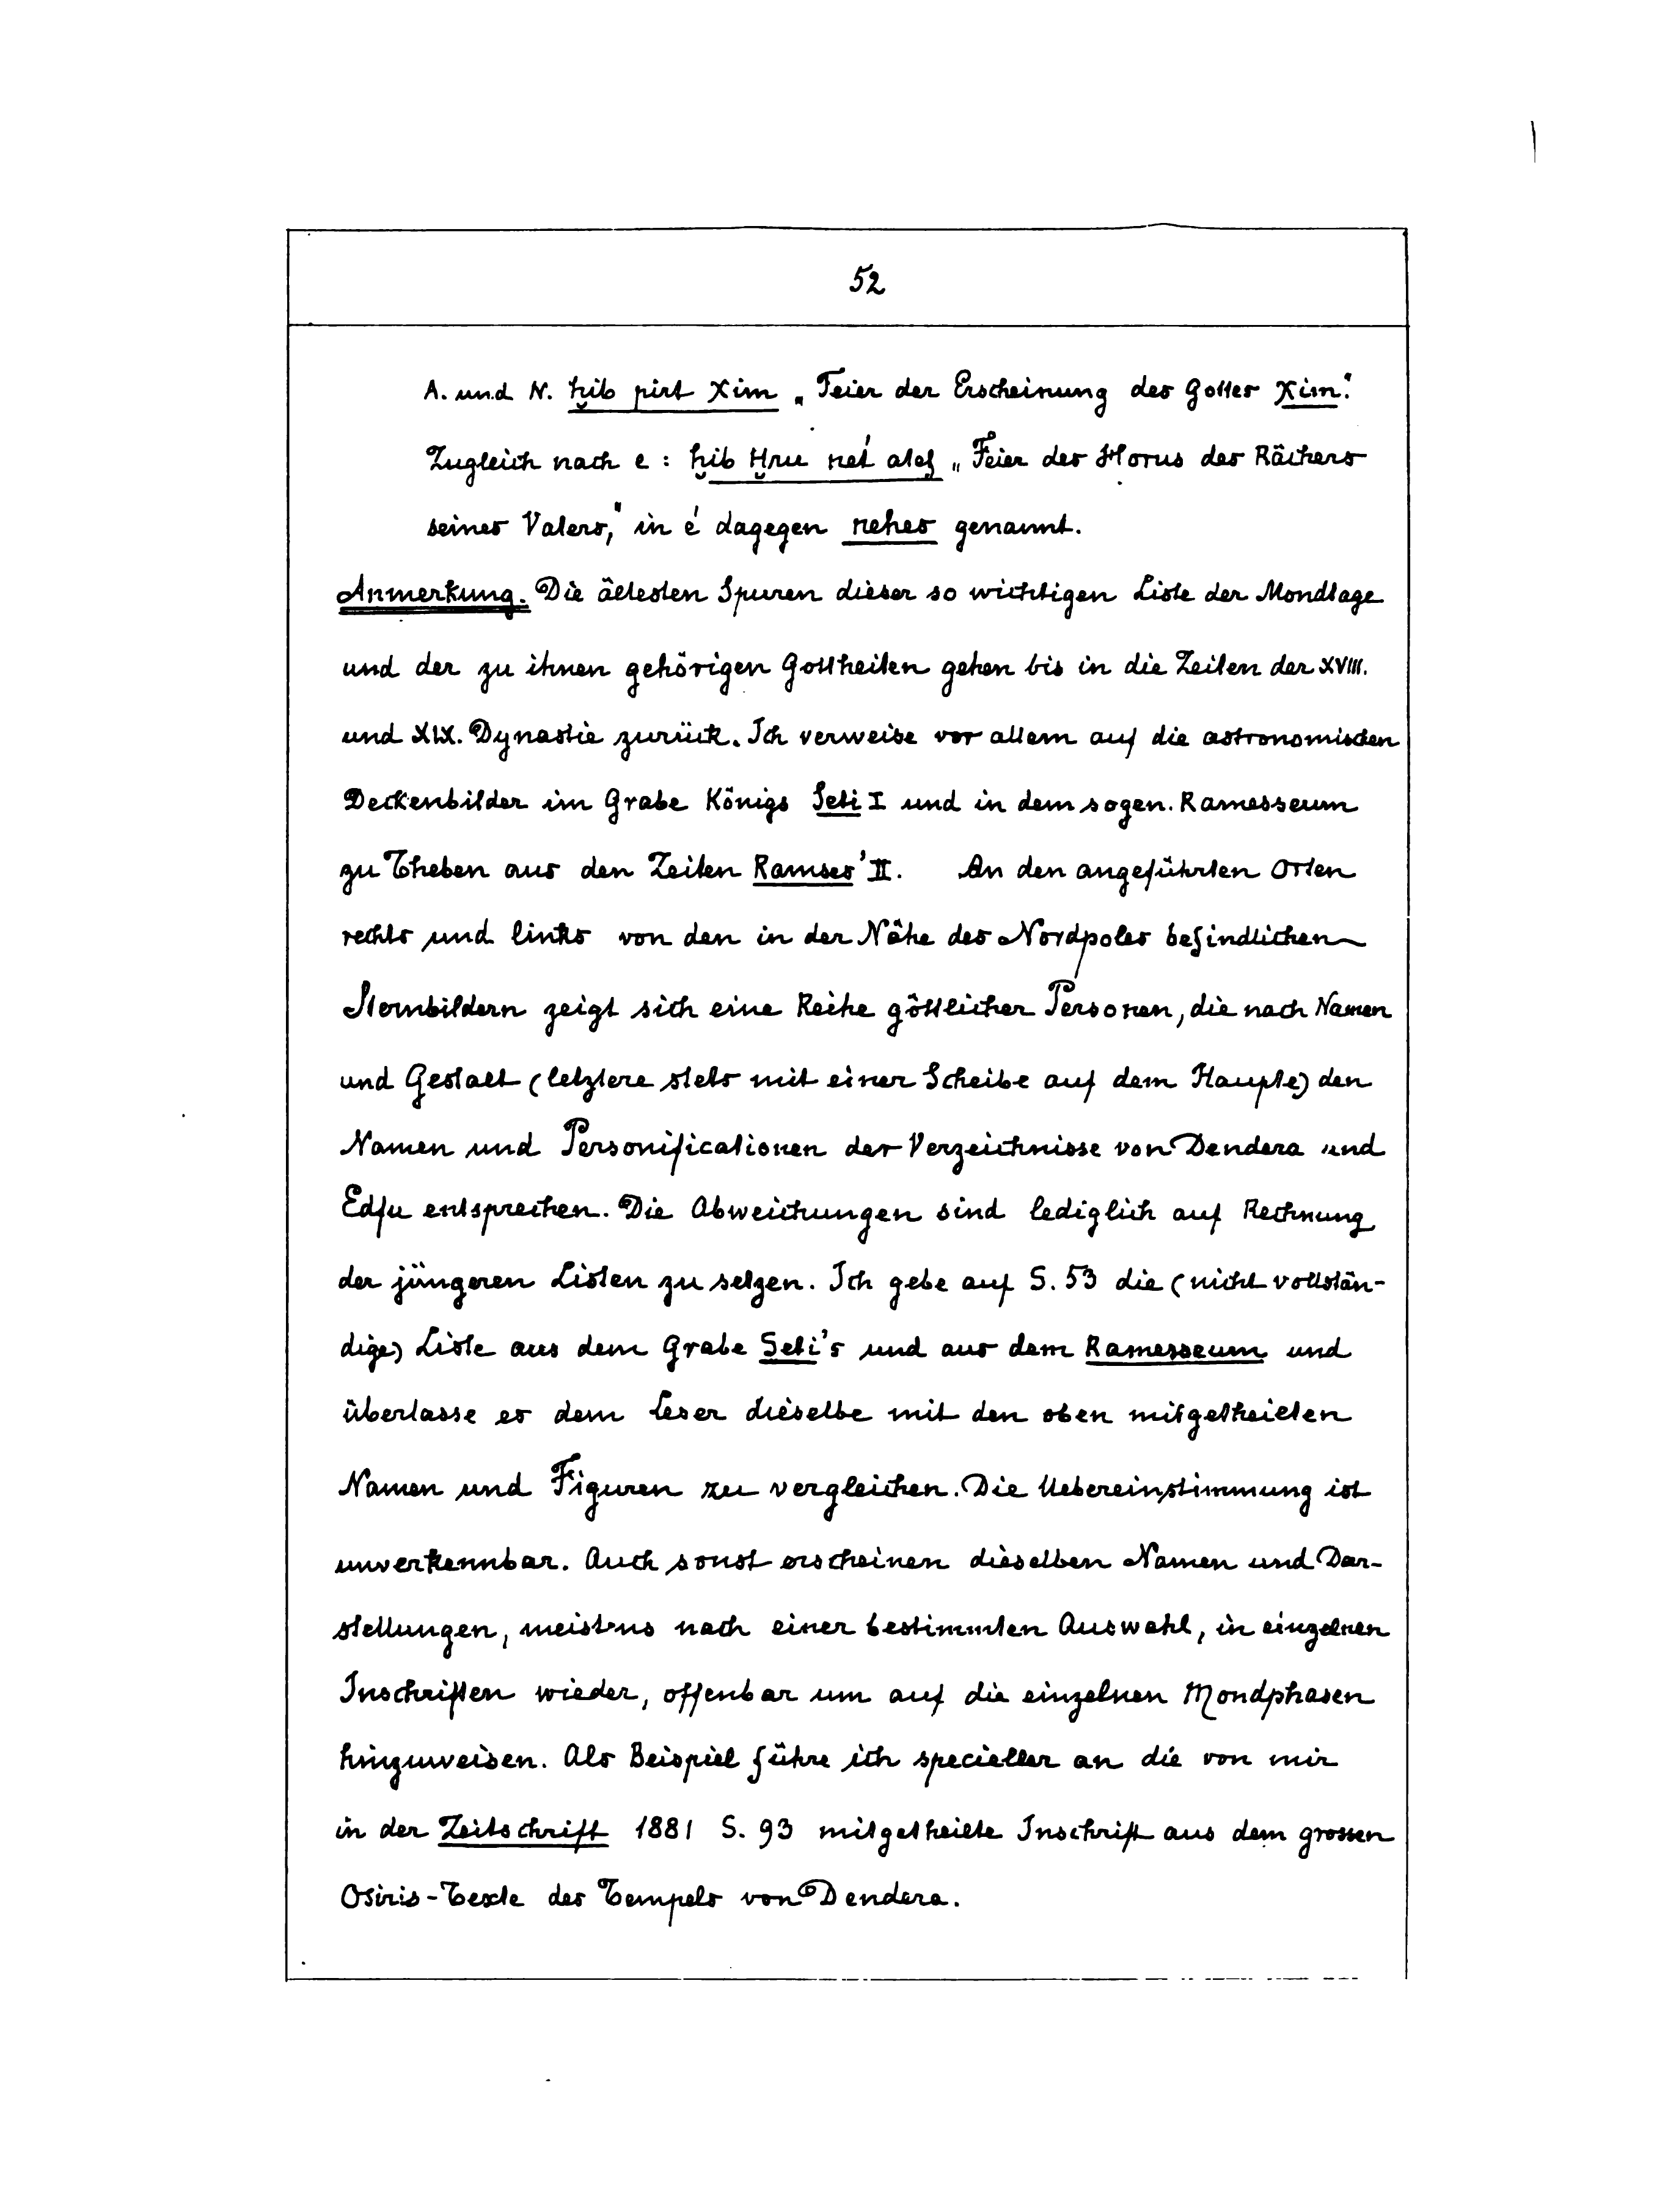 52
A. und N. ḥib pirt Xim „Feier der Erscheinung des Gottes Xim“.
Zugleich nach e: ḥib Ḥru net́ atef „Feier des Horus des Rächers
seines Vaters,“ in é dagegen nehes genannt.
Anmerkung. Die ältesten Spuren dieser so wichtigen Liste der Mondtage
und der zu ihnen gehörigen Gottheiten gehen bis in die Zeiten der XVIII.
und XIX. Dynastie zurück. Ich verweise vor allem auf die astronomischen
Deckenbilder im Grabe Königs Seti I und in dem sogen. Ramesseum
zu Theben aus den Zeiten Ramses' II. An den angeführten Orten
rechts und links von den in der Nähe des Nordpoles befindlichen
Sternbildern zeigt sich eine Reihe göttlicher Personen, die nach Namen
und Gestalt (letztere stets mit einer Scheibe auf dem Haupte) den
Namen und Personificationen der Verzeichnisse von Dendera und
Edfu entsprechen. Die Abweichungen sind lediglich auf Rechnung
der jüngeren Listen zu setzen. Ich gebe auf S. 53 die (nicht vollstän-
dige) Liste aus dem Grabe Seti's und aus dem Ramesseum und
überlasse es dem Leser dieselbe mit den oben mitgetheilten
Namen und Figuren zu vergleichen. Die Uebereinstimmung ist
unverkennbar. Auch sonst erscheinen dieselben Namen und Dar-
stellungen, meistens nach einer bestimmten Auswahl, in einzelnen
Inschriften wieder, offenbar um auf die einzelnen Mondphasen
hinzuweisen. Als Beispiel führe ich specieller an die von mir
in der Zeitschrift 1881 S. 93 mitgetheilte Inschrift aus dem grossen
Osiris-Texte des Tempels von Dendera.